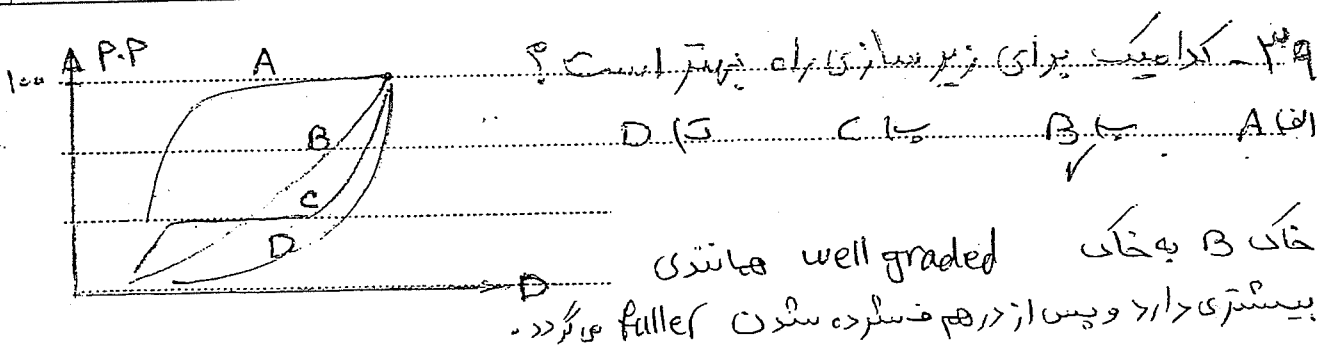 P.P
۱۰۰
A
B
C
D
D
۳۹ - کدامیک برای زیرسازی راه بهتر است ؟
الف) A ب) B پ) C ت) D
خاک B به خاک well graded همانندی
بیشتری دارد و پس از درهم فشرده شدن fuller می‌گردد.